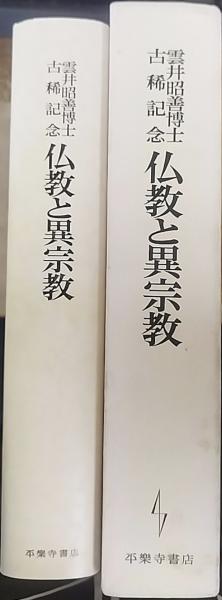 雲井昭善博士
古稀記念
仏教と異宗教
平樂寺書店
雲井昭善博士
古稀記念
仏教と異宗教
平樂寺書店